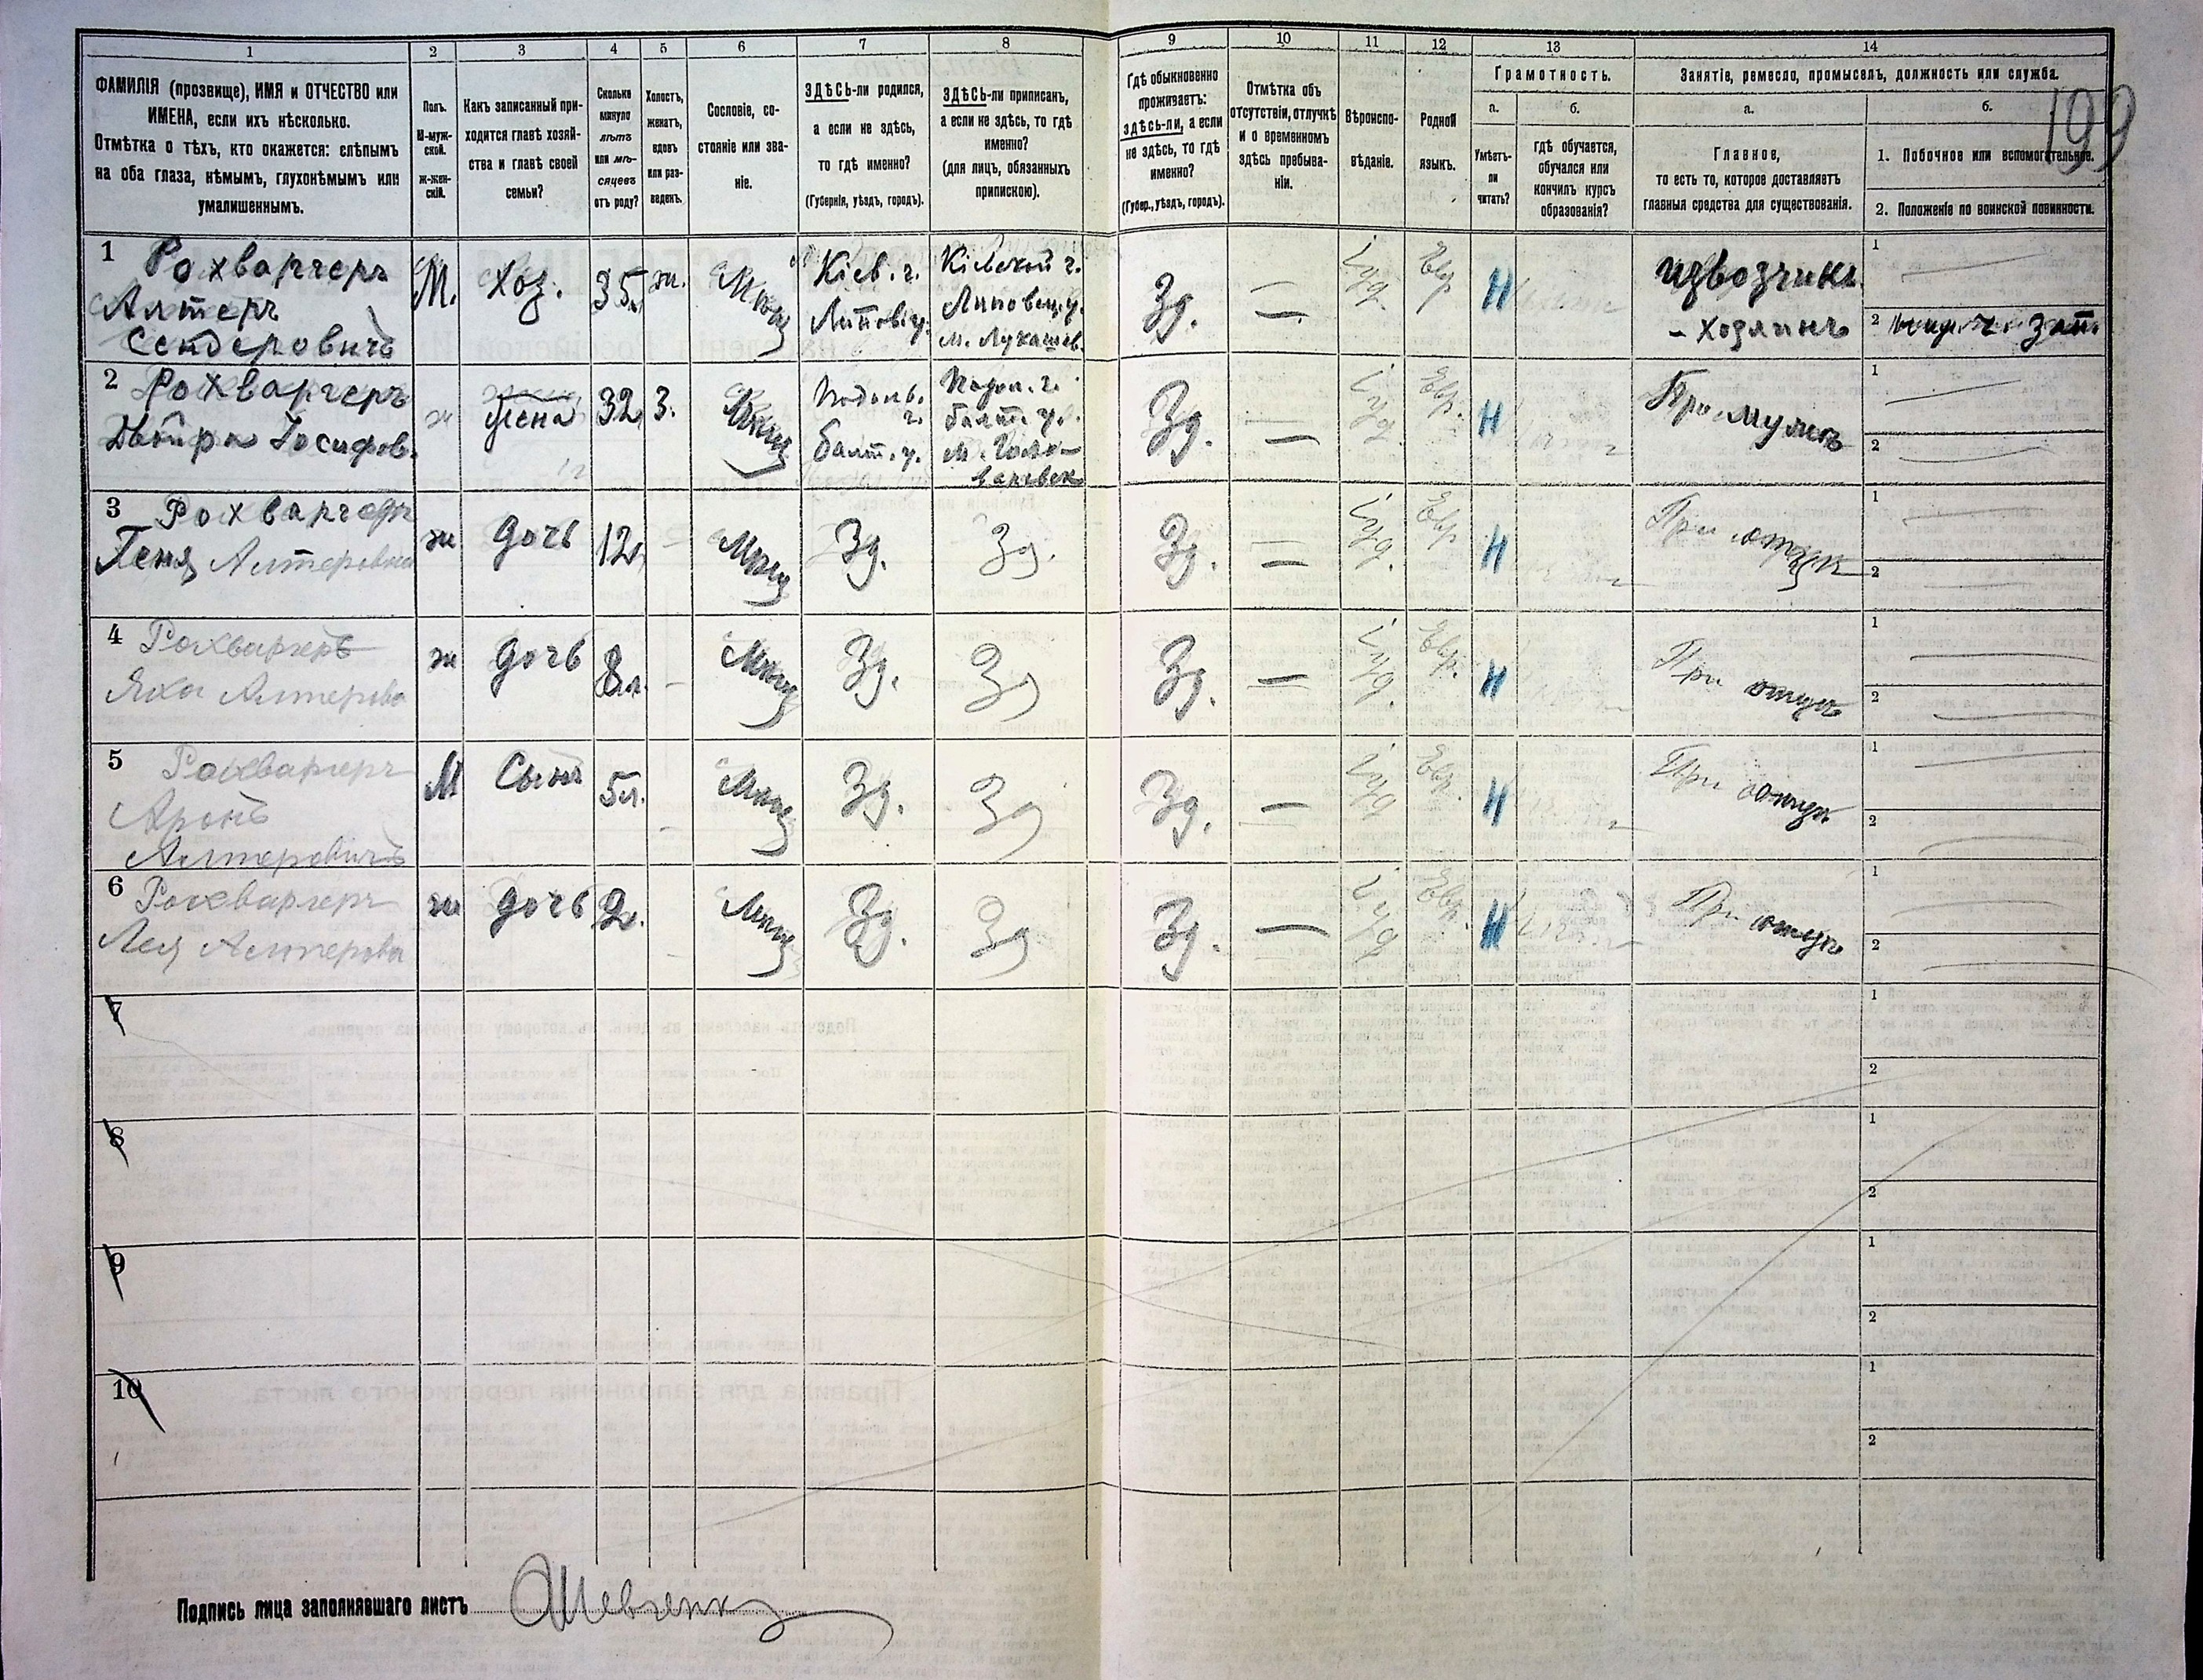 1
2
3
4
5
6
7
8
9
10
11
12
13
14
ФАМИЛІЯ (прозвище), ИМЯ и ОТЧЕСТВО или
ИМЕНА, если ихъ нѣсколько.
Отмѣтка о тѣхъ, кто окажется: слѣпымъ
на оба глаза, нѣмымъ, глухонѣмымъ или
умалишеннымъ.
Полъ.
М-муж-
ской.
Ж-жен-
скій.
Какъ записанный при-
ходится главѣ хозяй-
ства и главѣ своей
семьи?
Сколько
минуло
лѣтъ
или мѣ-
сяцевъ
отъ роду?
Холостъ,
женатъ,
вдовъ
или раз-
веденъ.
Сословіе, со-
стояніе или зва-
ніе.
ЗДѢСЬ-ли родился,
а если не здѣсь,
то гдѣ именно?
(Губернія, уѣздъ, городъ).
ЗДѢСЬ-ли приписанъ,
а если не здѣсь, то гдѣ
именно?
(для лицъ, обязанныхъ
припискою).
Гдѣ обыкновенно
проживаетъ:
здѣсь-ли, а если
не здѣсь, то гдѣ
именно?
(Губер., уѣздъ, городъ).
Отмѣтка объ
отсутствіи, отлучкѣ
и о временномъ
здѣсь пребыва-
ніи.
Вѣроиспо-
вѣданіе.
Родной
языкъ.
Грамотность.
а.
Умѣетъ-
ли
читать?
б.
гдѣ обучается,
обучался или
кончилъ курсъ
образованія?
Занятіе, ремесло, промыселъ, должность или служба.
а.
Главное,
то есть то, которое доставляетъ
главныя средства для существованія.
б.
1. Побочное или вспомогательное.
2. Положеніе по воинской повинности.
199
1 Рохваргеръ
Алтеръ
Сендеровичъ
М.
Хоз.
35
ж.
Мѣщ
Кіев. г.
Липов. у.
Кіевской г.
Липовец. у.
м. Лукашев.
Зд.
—
Іуд.
Евр
Н
извозчикъ
- хозяинъ
1
2
2 Рохваргеръ
Двойра Іосифов.
ж
Жена
32
З.
Мѣщ
Подол.
г.
балт. у.
Подол. г.
балт. у.
м.
Зд.
—
Іуд.
Евр.
Н
При мужѣ
1
2
3 Рохваргеръ
Геня Алтеровна
ж
дочь
12л
Мѣщ
Зд.
Зд.
Зд.
—
Іуд.
Евр
Н
При отцѣ
1
2
4 Рохваргеръ
Яха Алтерова
ж
дочь
8л.
Мѣщ
Зд.
Зд
Зд.
—
Іуд.
Евр.
Н
При отцѣ
1
2
5 Рохваргеръ
Аронъ
Алтеровичъ
М
Сынъ
5л.
Мѣщ
Зд.
Зд
Зд.
—
Іуд
Евр.
Н
При отцѣ
1
2
6 Рохваргеръ
Лея Алтерова
ж
дочь
2л.
Мѣщ
Зд.
Зд
Зд.
—
Іуд
Евр.
Н
При отцѣ
1
2
7
1
2
8
1
2
9
1
2
10
1
2
Подпись лица заполнявшаго листъ АШевченко